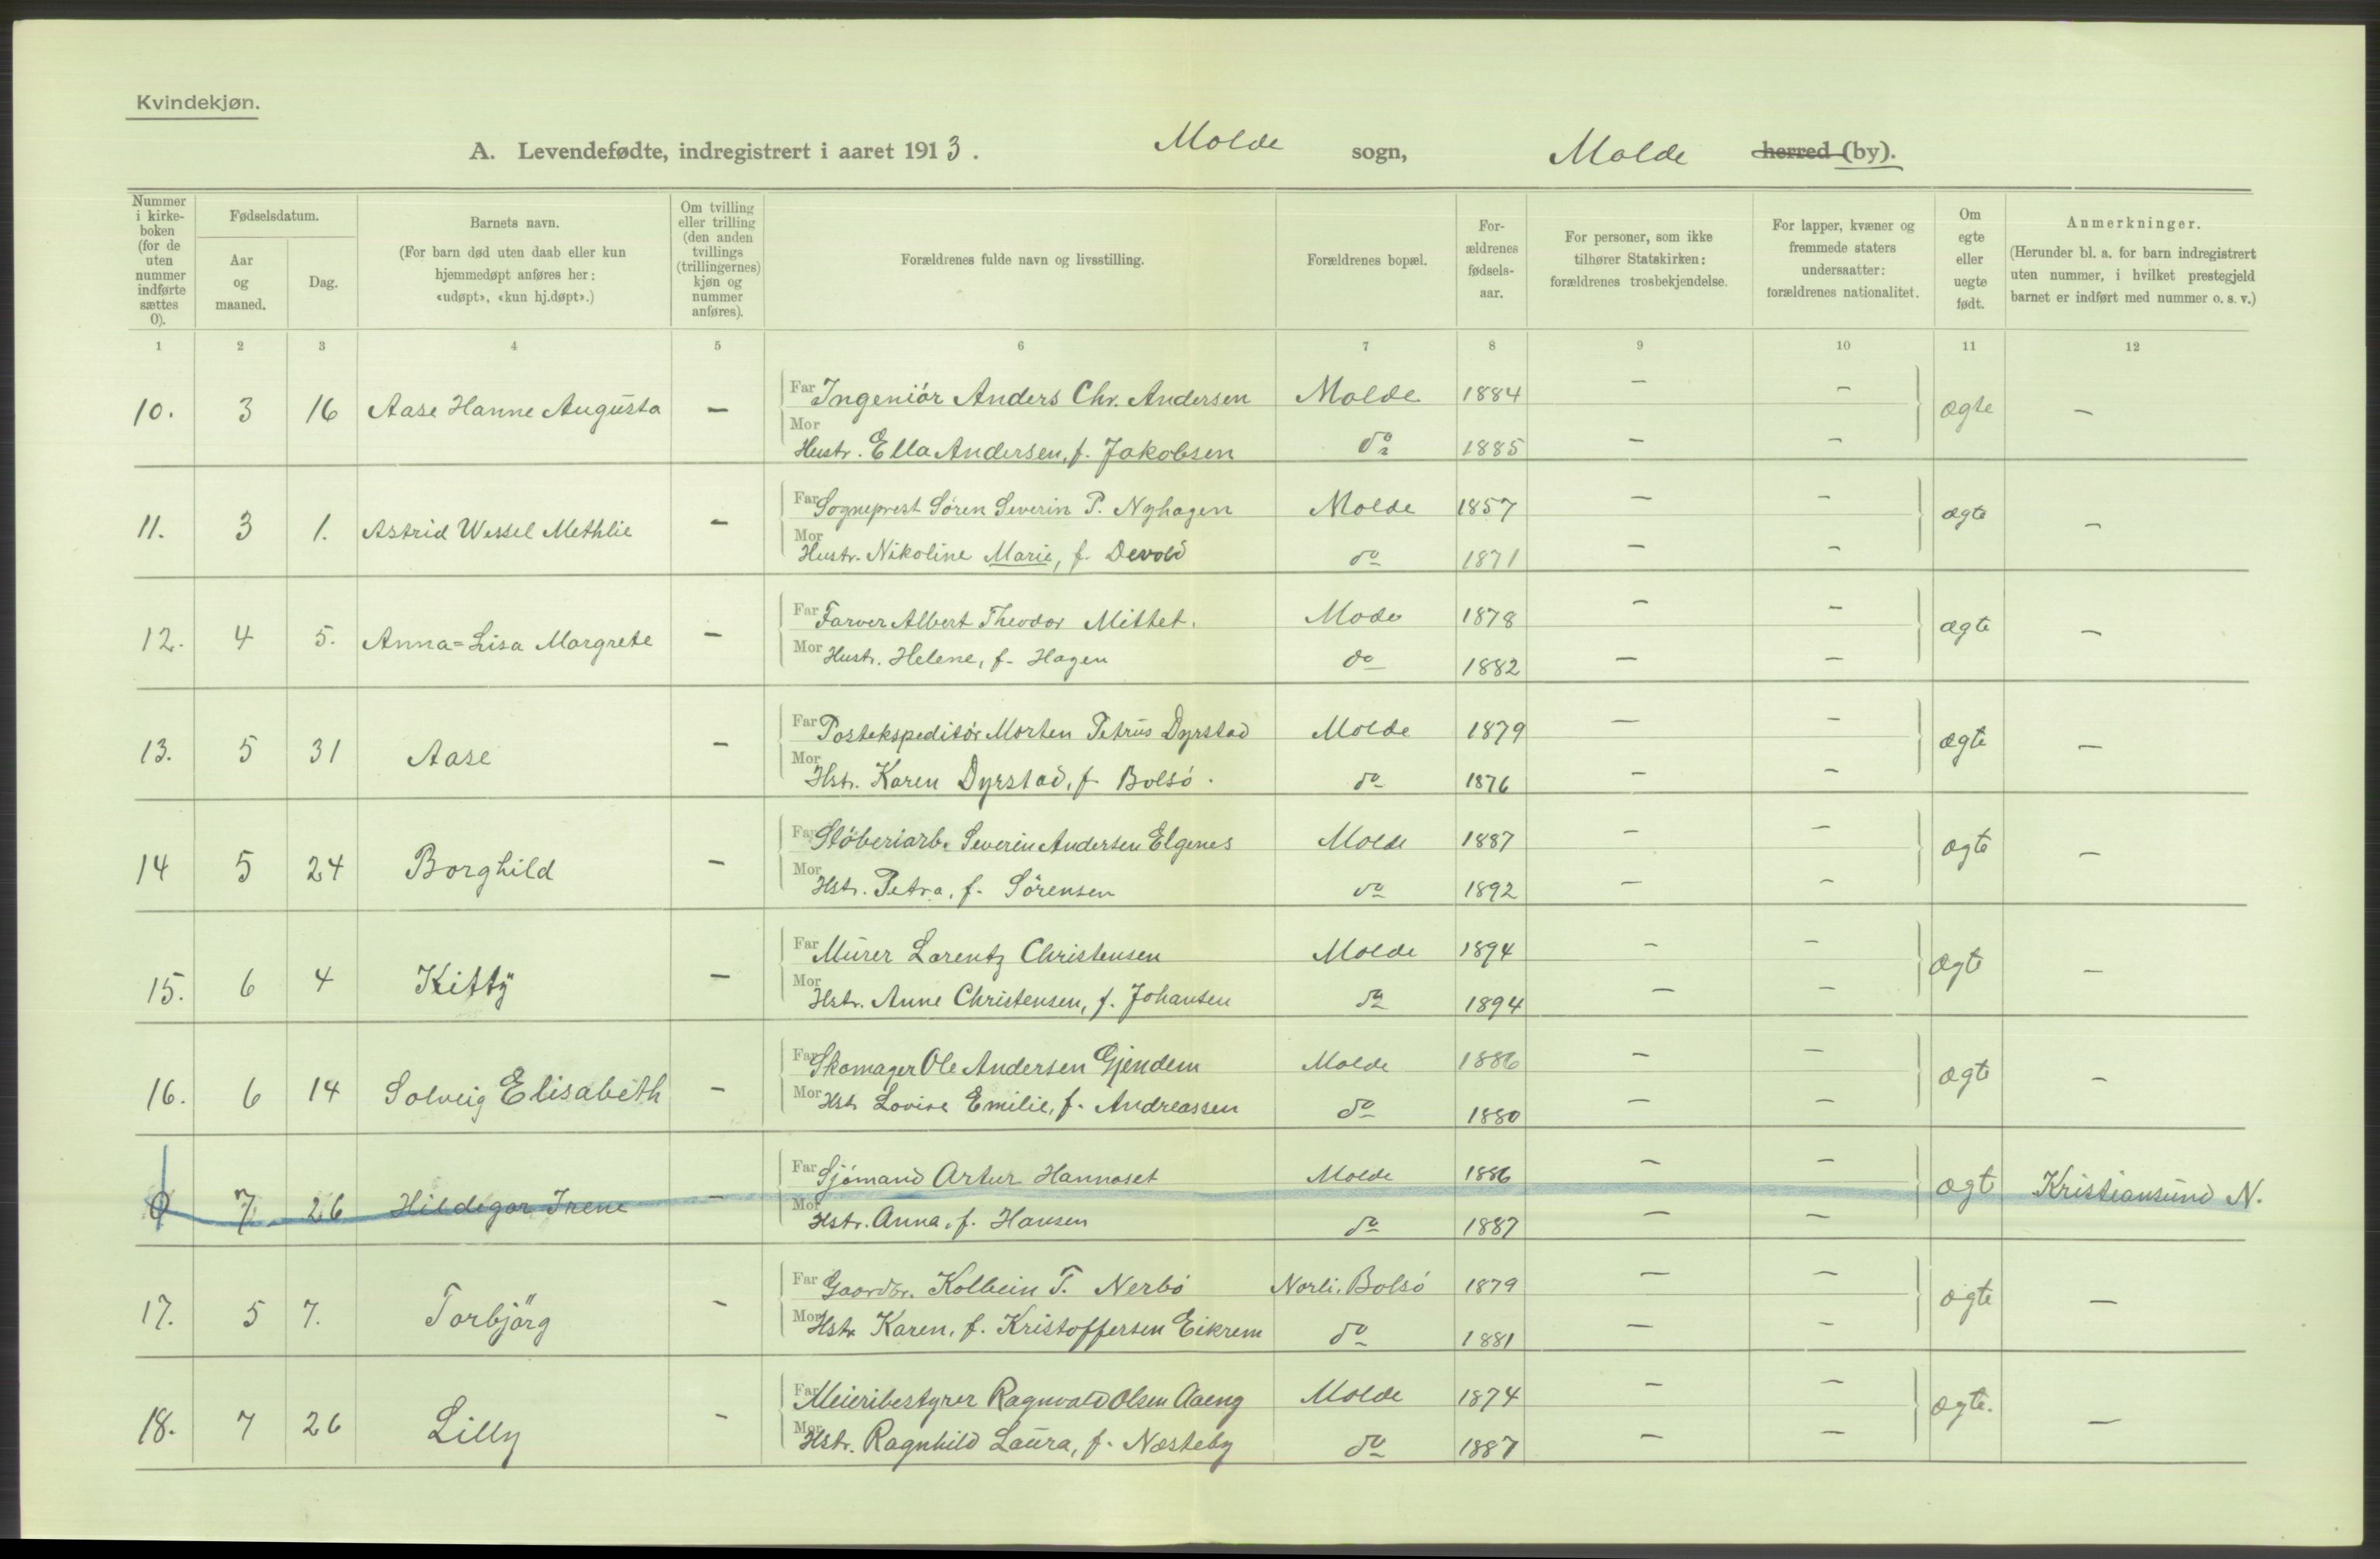 Kvindekjøn.
A. Levendefødte, indregistrert i aaret 1913. Molde sogn, Molde herred (by).
Nummer i kirke-boken (for de uten nummer indførte sættes 0).
Fødselsdatum.
Aar og maaned.
Dag.
Barnets navn.
(For barn død uten daab eller kun hjemmedøpt anføres her: «udøpt», «kun hj.døpt».)
Om tvilling eller trilling (den anden tvillings (trillingernes) kjøn og nummer anføres).
Forældrenes fulde navn og livsstilling.
Forældrenes bopæl.
For-ældrenes fødsels-aar.
For personer, som ikke tilhører Statskirken: forældrenes trosbekjendelse.
For lapper, kvæner og fremmede staters undersaatter: forældrenes nationalitet.
Om egte eller uegte født.
Anmerkninger.
(Herunder bl. a. for barn indregistrert uten nummer, i hvilket prestegjeld barnet er indført med nummer o. s. v.)
1 2 3 4 5 6 7 8 9 10 11 12
10. 3 16 Aase Hanne Augusta — Far Ingeniór Anders Chr. Andersen Molde 1884 — — ægte —
Mor Hustr. Ella Andersen, f. Jakobsen do 1885 — —
11. 3 1. Astrid Wessel Methlie — Far Sogneprest Sören Severin P. Nyhagen Molde 1857 — — ægte —
Mor Hustr. Nikoline Marie, f. Devold do 1871 — —
12. 4 5. Anna=Lisa Margrete — Far Farver Albert Theodor Mittet. Mode 1878 — — ægte —
Mor Hustr. Helene, f. Hagen do 1882 — —
13. 5 31 Aase — Far Postekspeditór Morten Petrus Dyrstad Molde 1879 — — ægte —
Mor Hstr. Karen Dyrstad, f. Bolsó. do 1876 — —
14 5 24 Borghild — Far Stöberiarb. Severin Andersen Elgenes Molde 1887 — — ægte —
Mor Hstr. Petra, f. Sörensen do 1892 — —
15. 6 4 Kitty — Far Murer Lorentz Christensen Molde 1894 — — ægte —
Mor Hstr. Anne Christensen, f. Johansen do 1894 — —
16. 6 14 Solveig Elisabeth — Far Skomager Ole Andersen Gjendem Molde 1886 — — ægte —
Mor Hstr Lovise Emilie, f. Andreassen do 1880 — —
0 7. 26 Hildegar Irene — Far Sjómand Artur Hannaset Molde 1886 — — ægt Kristiansund N.
Mor Hstr. Anna, f. Hansen do 1887 — —
17. 5 7. Torbjörg — Far Gaardbr. Kolbein T. Nerbó Norli, Bolsó 1879 — — ægte —
Mor Hstr Karen, f. Kristoffersen Eikrem do 1881 — —
18. 7 26 Lilly — Far Meieribestyrer Ragnvald Olsen Aaeng Molde 1874 — — ægte. —
Mor Hstr. Ragnhild Laura, f. Næsteby do 1887 — —